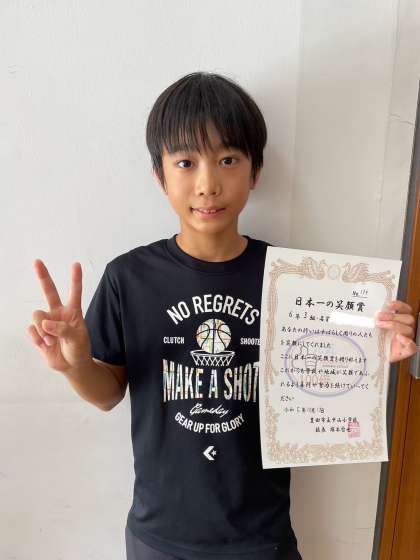 NO REGRETS
CLUTCH SHOOTE
MAKE A SHOT
Gameday
GEAR UP FOR GLORY
日本一の笑顔賞
6年3組
あなたの行いはすばらしく周りの人たち
を笑顔にしてくれました
ここに日本一の笑顔賞を贈り称えます
これからも学校や地域が笑顔であふ
れるよう善行や努力を続けていってく
ださい
令和5年
豊田市立中山小学校
校長